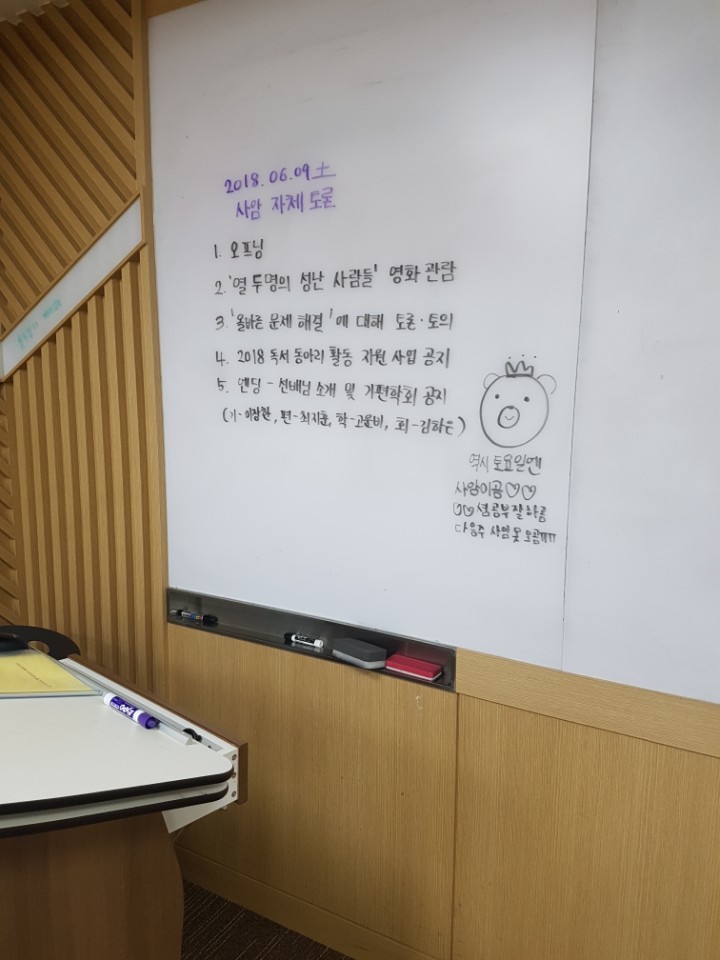 2018.06.09 土
사암 자체 토론
1. 오프닝
2. '열 두명의 성난 사람들' 영화 관람
3. '올바른 문제 해결'에 대해 토론·토의
4. 2018 독서 동아리 활동 지원 사업 공지
5. 엔딩 - 선배님 소개 및 기편학회 공지
(기-이상환, 편-최지훈, 학-고은비, 회-김하은)
역시 토요일엔
사암이곰♡♡
♡♡셤공부잘하곰
다음주 사암 못 오곰ㅠㅠ